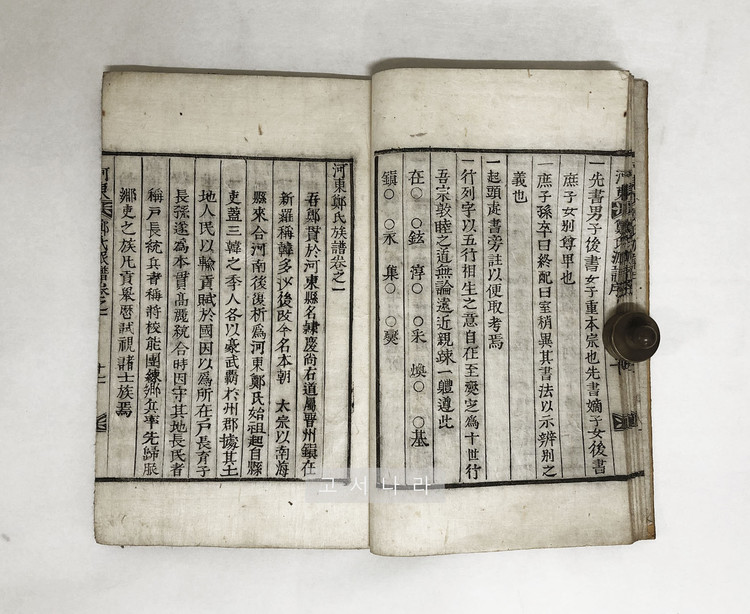 一先書男子後書女子重本宗也先書嫡子女後書
庶子女別尊卑也
一庶子孫卒曰終配曰室稍異其書法以示辨別之
義也
一起頭走書旁註以便取考焉
一行列字以五行相生之意自在至爕定爲十世行
吾宗敦睦之道無論遠近親疎一軆遵此
在○ ○鉉 淳○ ○采 煥○ ○基
鎭○ ○永 集○ ○爕
河東鄭氏族譜卷之一
吾鄭貫於河東縣名隷慶尚右道屬晋州鎭在
新羅稱韓多沙後改今名本朝 太宗以南海
縣來合河南後復析爲河東鄭氏始祖起自縣
吏盖三韓之季人各以豪武覇於州郡據其土
地人民以輸貢賦於國因以爲所在戸長育子
長孫遂爲本貫高麗統合時因守其地長氏者
稱戸長統兵者稱將校能團練鄉兵事先歸脤
鄉吏之族凡貢擧歷試視諸士族焉
河東 鄭氏派譜卷之一 十一
고서나라